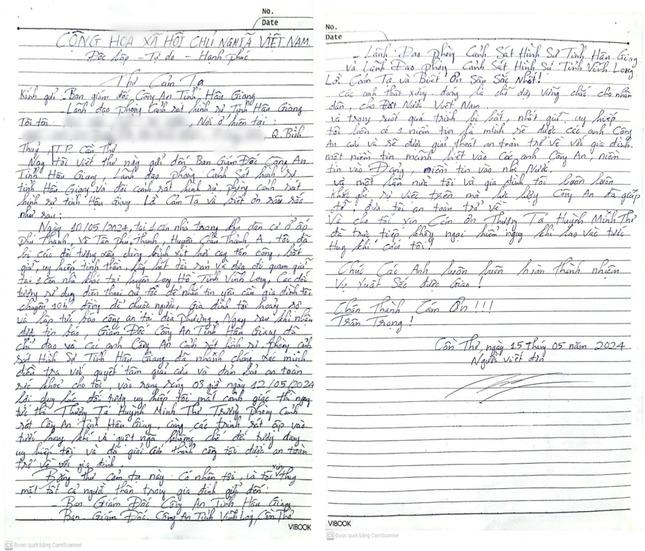 No.
Date
CỘNG HÒA XÃ HỘI CHỦ NGHĨA VIỆT NAM
Độc Lập - Tự do - Hạnh phúc
Thư Cảm Tạ
Kính gửi: Ban giám đốc, Công An Tỉnh Hậu Giang
- Lãnh đạo phòng cảnh sát hình sự Tỉnh Hậu Giang
Tôi tên Nơi ở hiện tại:
Q. Bình
Thuỷ, T.P Cần Thơ
Nay Tôi viết thư này gửi đến Ban Giám Đốc Công An
Tỉnh Hậu Giang, Lãnh đạo phòng Cảnh Sát Hình Sự
tỉnh Hậu Giang và đội cảnh sát hình sự phòng cảnh sát
hình sự tỉnh Hậu Giang Lời Cảm Tạ và biết ơn sâu sắc
như sau:
Ngày 10/05/2024, tại 1 căn nhà trong khu dân cư ở ấp
Phú Thạnh, xã Tân Phú Thạnh, Huyện Châu Thành A, tôi đã
bị các đối tượng xông dùng bình xịt hơi cay tấn công, bắt
giữ, uy hiếp tinh thần, lấy hết tài sản và đưa đi giam giữ
tại 1 căn nhà khác tại huyện Long Hồ, Tỉnh Vĩnh Long, Các đối
tượng sử dụng điện thoại của tôi để nhắn tin yêu cầu gia đình tôi
chuyển tiền để chuộc người, gia đình tôi hoảng sợ
và lập tức báo công an tại địa phương, Ngay sau khi nhận
được tin báo Giám Đốc Công An Tỉnh Hậu Giang đã
chỉ đạo và các anh Công An Cảnh sát hình sự phòng cảnh
sát Hình Sự Tỉnh Hậu Giang đã nhanh chóng xác minh
điều tra với quyết tâm giải cứu và đảm bảo an toàn
sức khoẻ cho tôi, và rạng sáng 03 giờ ngày 12/05/2024
lợi dụng lúc đối tượng uy hiếp tôi mất cảnh giác thì ngay
tức thì Thượng Tá Huỳnh Minh Thơ Trưởng Phòng Cảnh
sát Công An Tỉnh Hậu Giang, cùng các trinh sát ập vào
tước hung khí và quật ngã khống chế đối tượng đang
uy hiếp tôi và đã giải cứu thành công tôi được an toàn
trở về với gia đình.
Bằng thư cảm tạ này Cá nhân tôi, và tôi thay
mặt tất cả người thân trong gia đình gửi đến:
- Ban Giám Đốc Công An Tỉnh Hậu Giang
Ban Giám Đốc, Công An Tỉnh Vĩnh Long, Cần Thơ
VIBOOK
Được quét bằng CamScanner
No.
Date
- Lãnh Đạo phòng Cảnh Sát Hình Sự Tỉnh Hậu Giang
và Lãnh Đạo phòng Cảnh Sát Hình Sự Tỉnh Vĩnh Long
Lời Cảm Tạ và Biết Ơn Sâu Sắc Nhất!
Các anh thật xứng đáng là chỗ dựa vững chắc cho nhân
dân, cho Đất Nước Việt Nam.
và trong suốt quá trình bị bắt, nhốt giữ, uy hiếp
tôi luôn có 1 niềm tin là mình sẽ được các anh Công
An cứu và sẽ được giải thoát an toàn trở về với gia đình.
một niềm tin mãnh liệt vào Các anh Công An, niềm
tin vào Đảng, niềm tin vào nhà Nước.
và một lần nữa tôi và gia đình tôi luôn luôn
khắc ghi sự việc trên mà lực lượng Công An đã giúp
để đưa tôi an toàn trở về.
Và cho tôi xin Cảm ơn Thượng Tá Huỳnh Minh Thơ
đã trực tiếp không ngại hiểm nguy khi lao vào tước
Hung khí cứu tôi!
Chúc Các Anh luôn luôn hoàn thành nhiệm
Vụ xuất sắc được Giao!
Chân Thành Cám Ơn!!!
Trân Trọng!
Cần Thơ, ngày 15 tháng 05 năm 2024
Người viết đơn
VIBOOK
Được quét bằng CamScanner